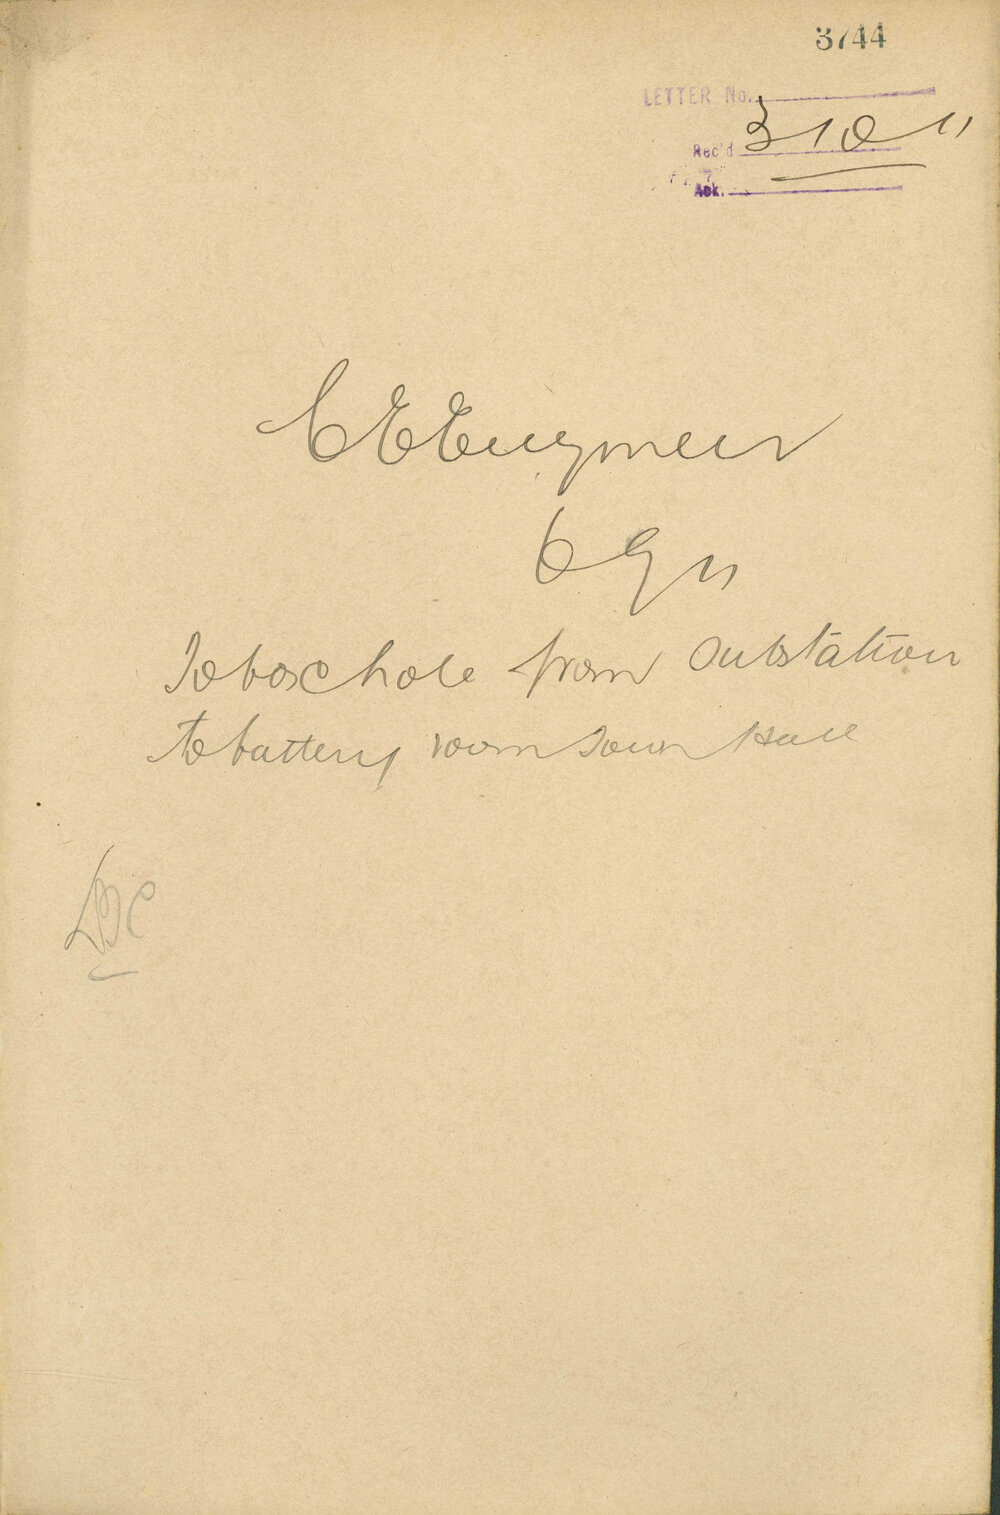 3744
LETTER No.
Rec'd 3 10 11
Ack.
C E Engineer
C Gn
To box hole from Substation
to battery room Town Hall